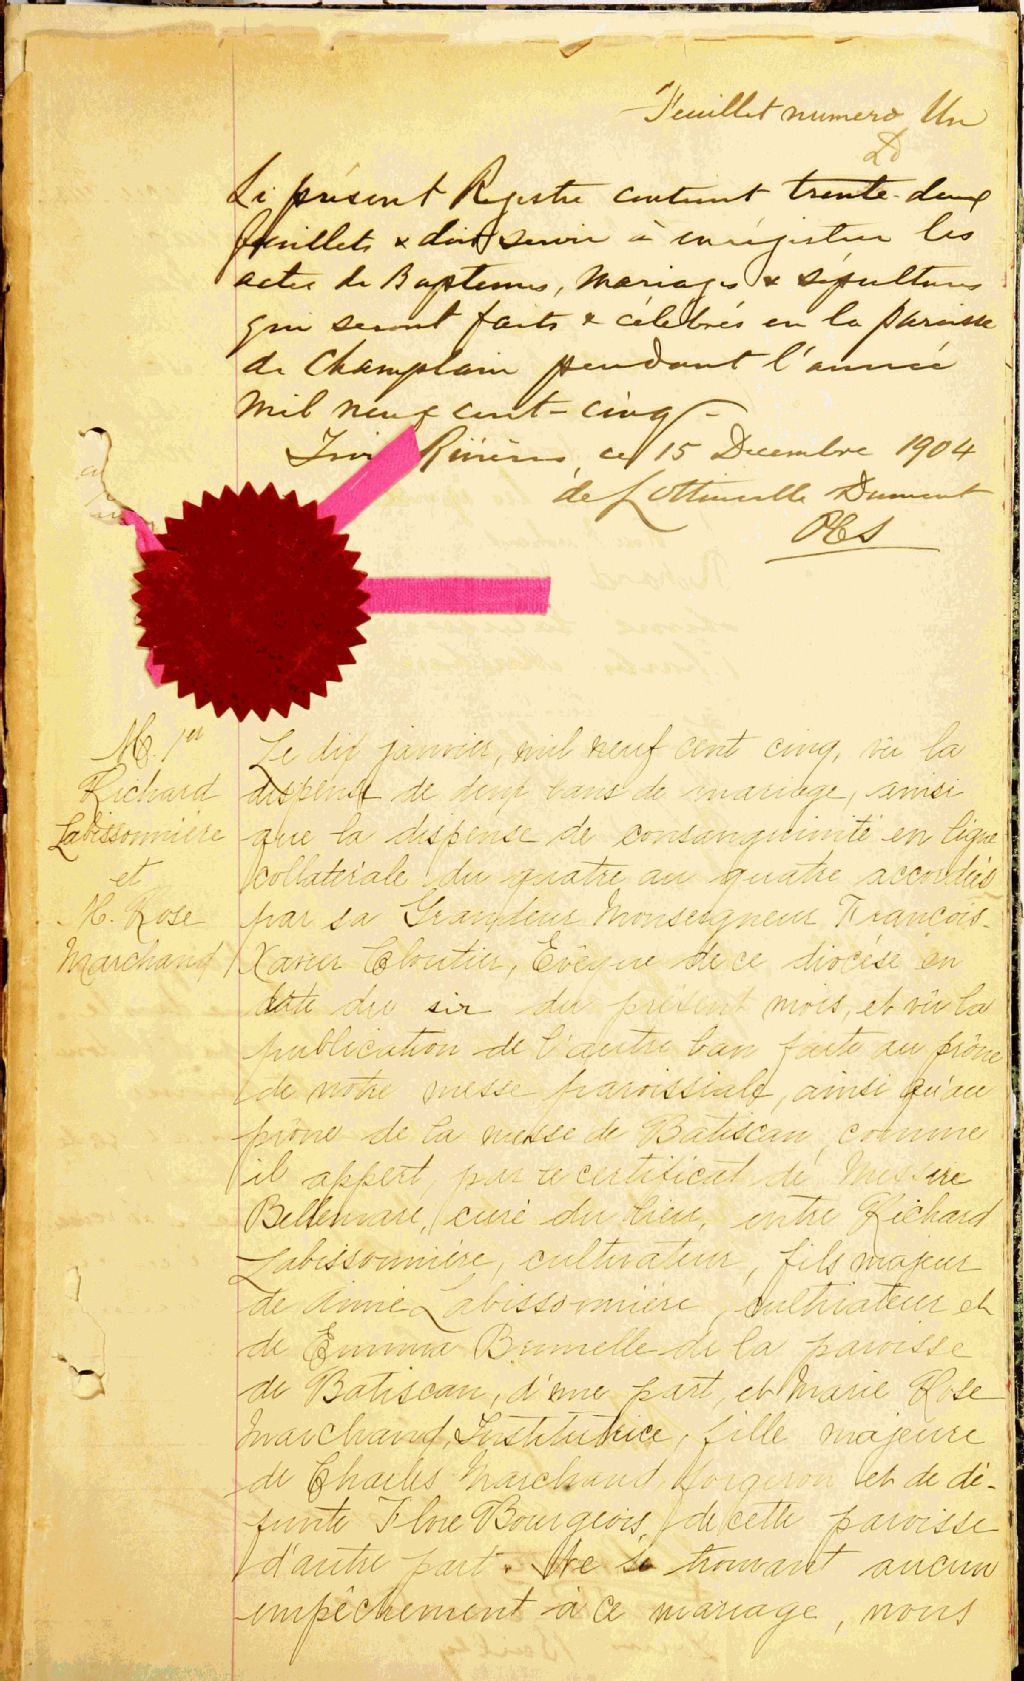 Feuillet numero Un
Le présent Registre contient trente-deux
feuillets & doit servir à enrégistrer les
actes de Baptemes, Mariages & sépultures
qui seront faits & célébrés en la paroisse
de Champlain pendant l'année
Mil neuf cent-cinq -
Trois Rivières, ce 15 Decembre 1904
de Lottinville Dumont
PCS
M. 1er
Richard
Labissonnière
et
M. Rose
Marchand
Le dix janvier, mil neuf cent cinq, vu la
dispense de deux bans de mariage, ainsi
que la dispense de consanguinité en ligne
collatérale du quatre au quatre accordées
par sa Grandeur Monseigneur François-
Xavier Cloutier, Evêque de ce diocèse en
date du six du présent mois, et vû la
publication de l'autre ban faite au prône
de notre messe paroissiale, ainsi qu'au
prône de la messe de Batiscan, comme
il appert, par le certificat de Messire
Bellemare, curé du lieu, entre Richard
Labissonnière, cultivateur, fils majeur
de Aimé Labissonnière, cultivateur et
de Emma Brunelle de la paroisse
de Batiscan, d'une part, et Marie Rose
Marchand, Institutrice, fille majeure
de Charles Marchand, forgeron et de dé-
funte Flore Bourgeois, de cette paroisse
d'autre part. Ne se trouvant aucun
empêchement à ce mariage, nous